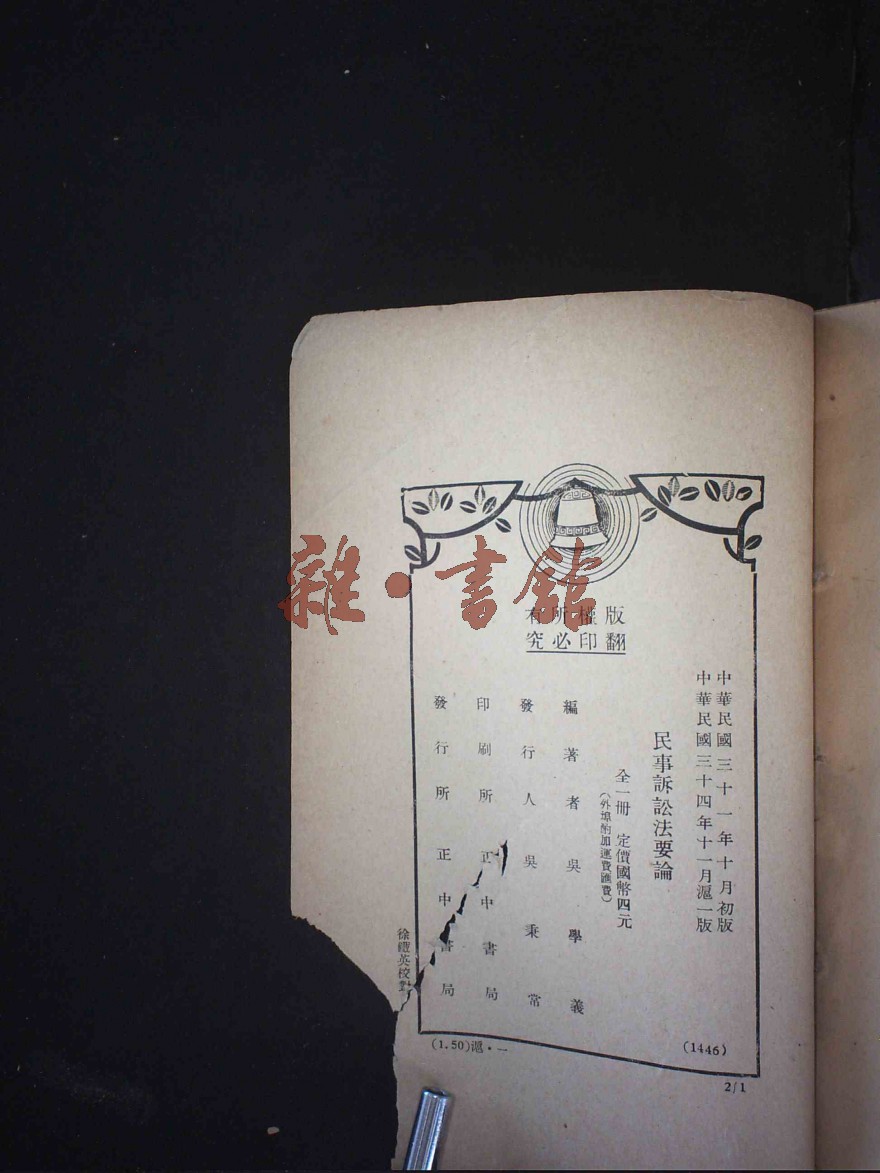 雜·書館
版權所有
翻印必究
中華民國三十一年十月初版
中華民國三十四年十一月滬一版
民事訴訟法要論
全一冊 定價國幣四元
(外埠酌加運費匯費)
編著者 吳學義
發行人 吳秉常
印刷所 正中書局
發行所 正中書局
徐鐵英校對
(1446)
(1.50)滬·一
2/1